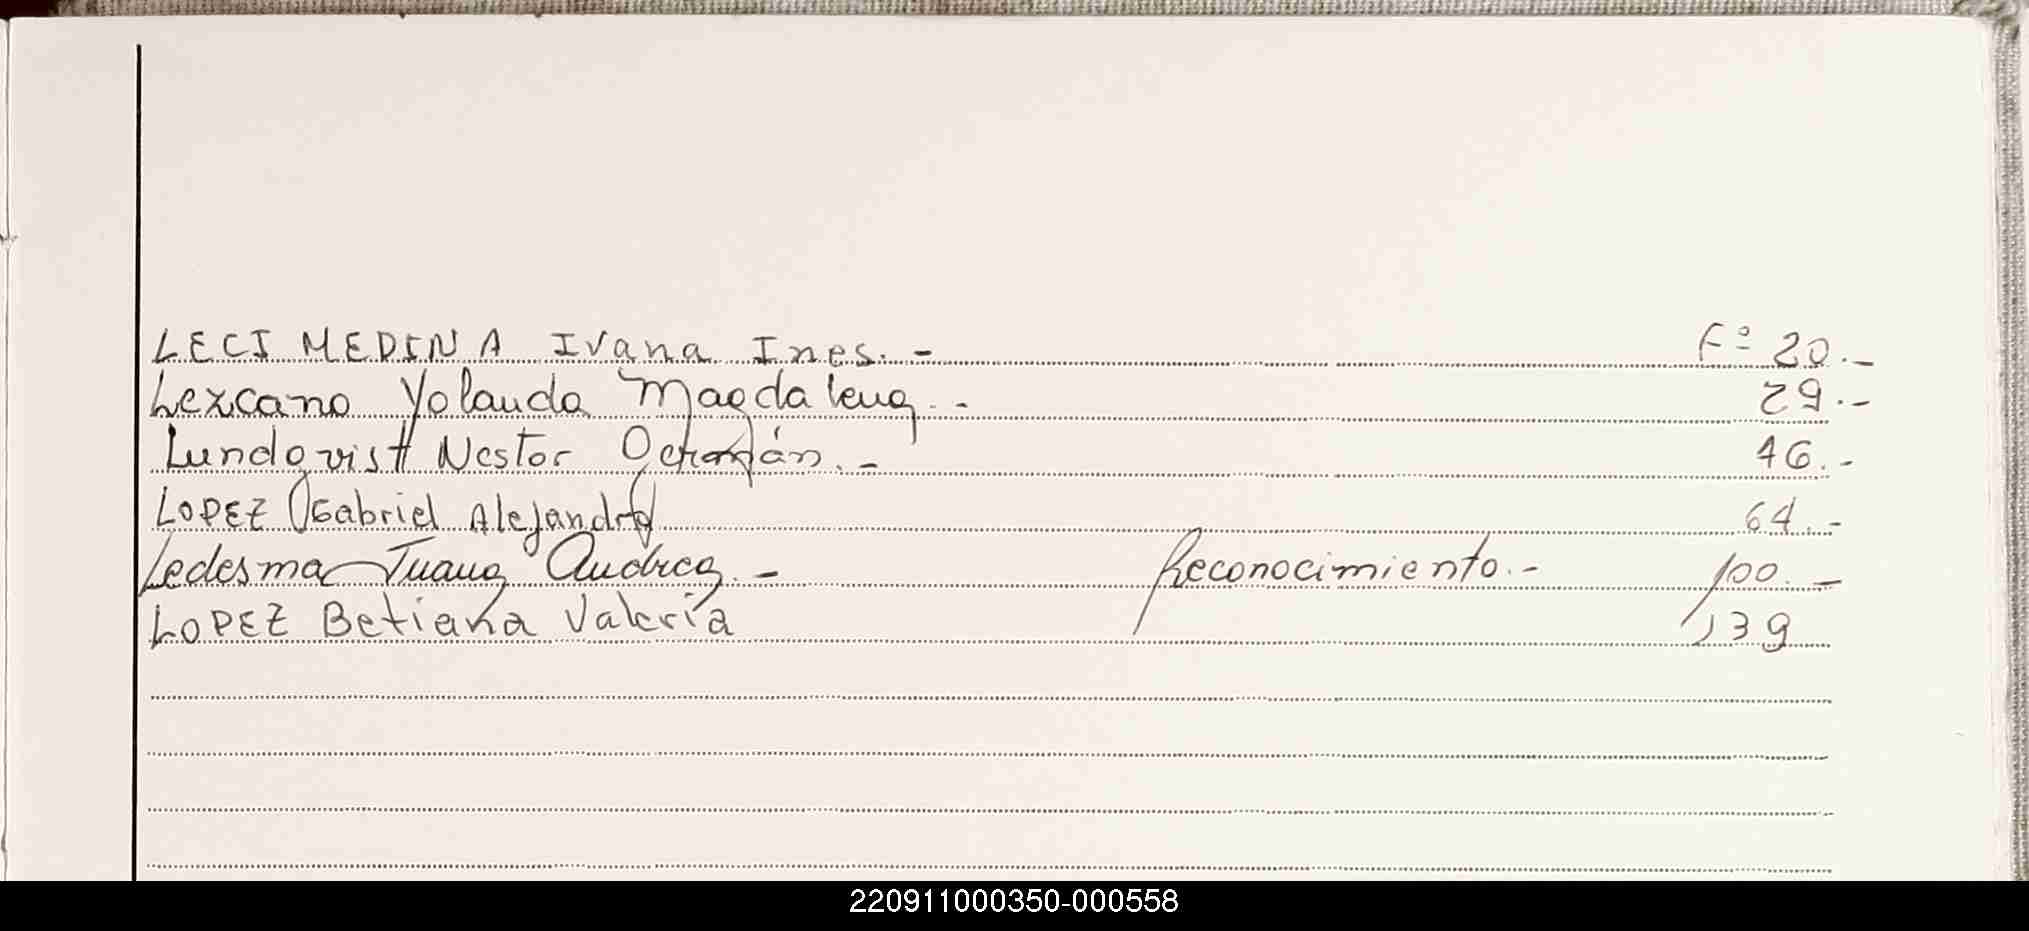 LECI MEDINA Ivana Ines.- Fº 20.-
Lezcano Yolanda Magdalena.- 29.-
Lundqvist Nestor Germán.- 46.-
LOPEZ Gabriel Alejandro 64.-
Ledesma Juana Andrea.- Reconocimiento.- 100.-
LOPEZ Betiana Valeria 139
220911000350-000558